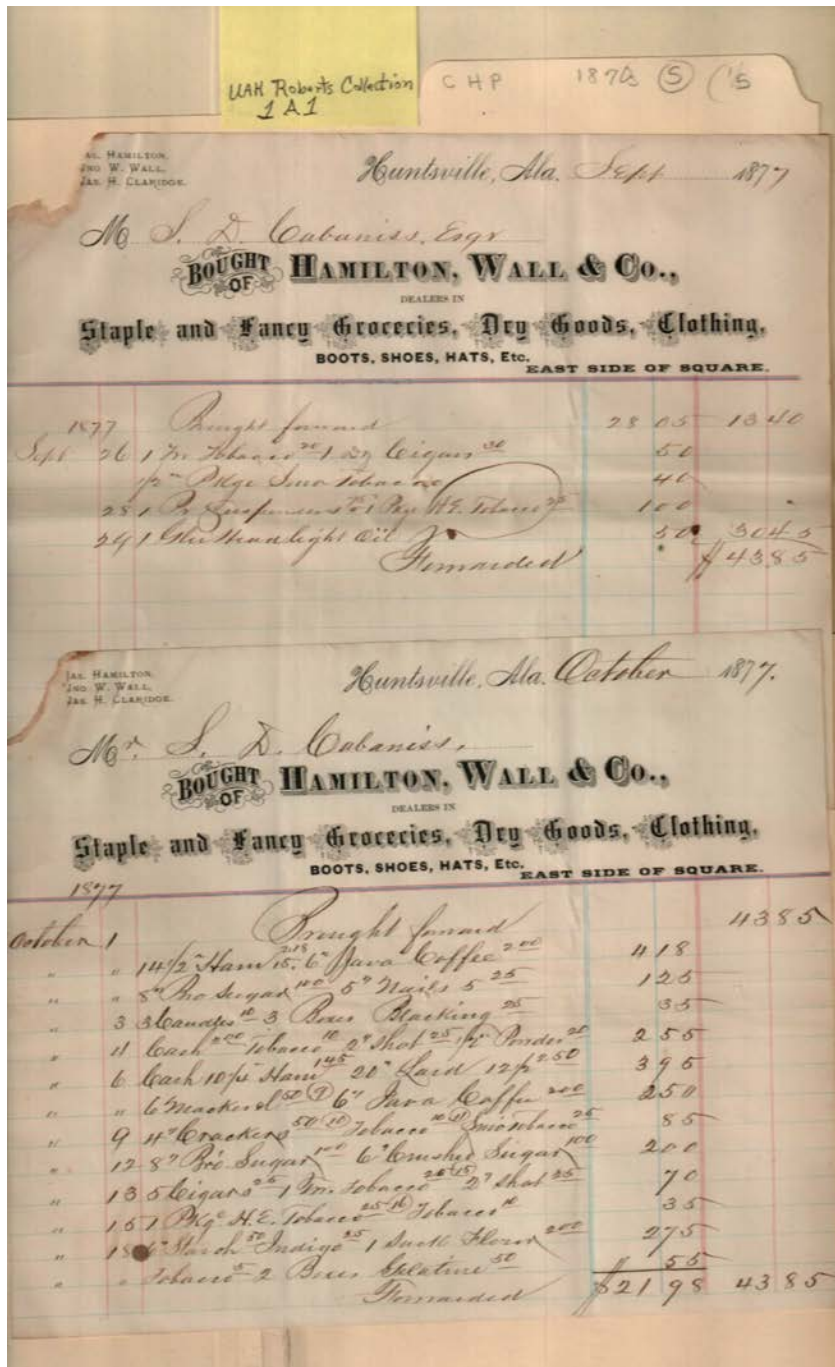 UAH Roberts Collection
1A1
CHP 1870s (5) ('5
JAS. HAMILTON,
JNO W. WALL,
JAS. H. CLARIDGE.
Huntsville, Ala. Sept 1877
M S. D. Cabaniss, Esqr
BOUGHT OF HAMILTON, WALL & CO.,
DEALERS IN
Staple and Fancy Groceries, Dry Goods, Clothing,
BOOTS, SHOES, HATS, Etc.
EAST SIDE OF SQUARE.
1877 Brought forward 28 05 13 40
Sept 26 1 Tobacco 20 1 Dz Cigars 30 50
1/2 " Pkge Tobacco 40
28 1 Pr Suspenders 75 1 Pkge H.E. Tobacco 25 1 00
29 1 Headlight Oil 50 30 45
Forwarded $43 85
JAS. HAMILTON,
JNO W. WALL,
JAS. H. CLARIDGE.
Huntsville, Ala. October 1877.
Mr. S. D. Cabaniss,
BOUGHT OF HAMILTON, WALL & CO.,
DEALERS IN
Staple and Fancy Groceries, Dry Goods, Clothing,
BOOTS, SHOES, HATS, Etc.
EAST SIDE OF SQUARE.
1877
October 1 Brought forward 43 85
" " 14 1/2 " Ham 15 2.18 6 " Java Coffee 2 00 4 18
" " 8 " Bro Sugar 1 00 5 " Nails 5 25 1 25
" 3 3 Candles 10 3 Boxes Blacking 25 35
" 4 Cash 2 00 Tobacco 10 2 " Shot 25 1/2 " Powder 20 2 55
" 6 Cash Ham 1 45 20 " Lard 12 1/2 2 50 3 95
" " 6 " Mackerel 50 (7) 6 " Java Coffee 2 00 2 50
" 9 4 " Crackers 50 (10) Tobacco 10 (11) Smo Tobacco 25 85
" 12 8 " Bro. Sugar 1 00 6 " Crushed Sugar 1 00 2 00
" 13 5 Cigars 25 1 Tobacco 20 (15) 2 " Shot 25 70
" 15 1 Pkge H.E. Tobacco 25 (16) Tobacco 10 35
" 18 6 " Starch 50 Indigo 25 1 Sack Flour 2 00 2 75
" " Tobacco 5 2 Boxes Gelatine 50 55
Forwarded $21 98 43 85